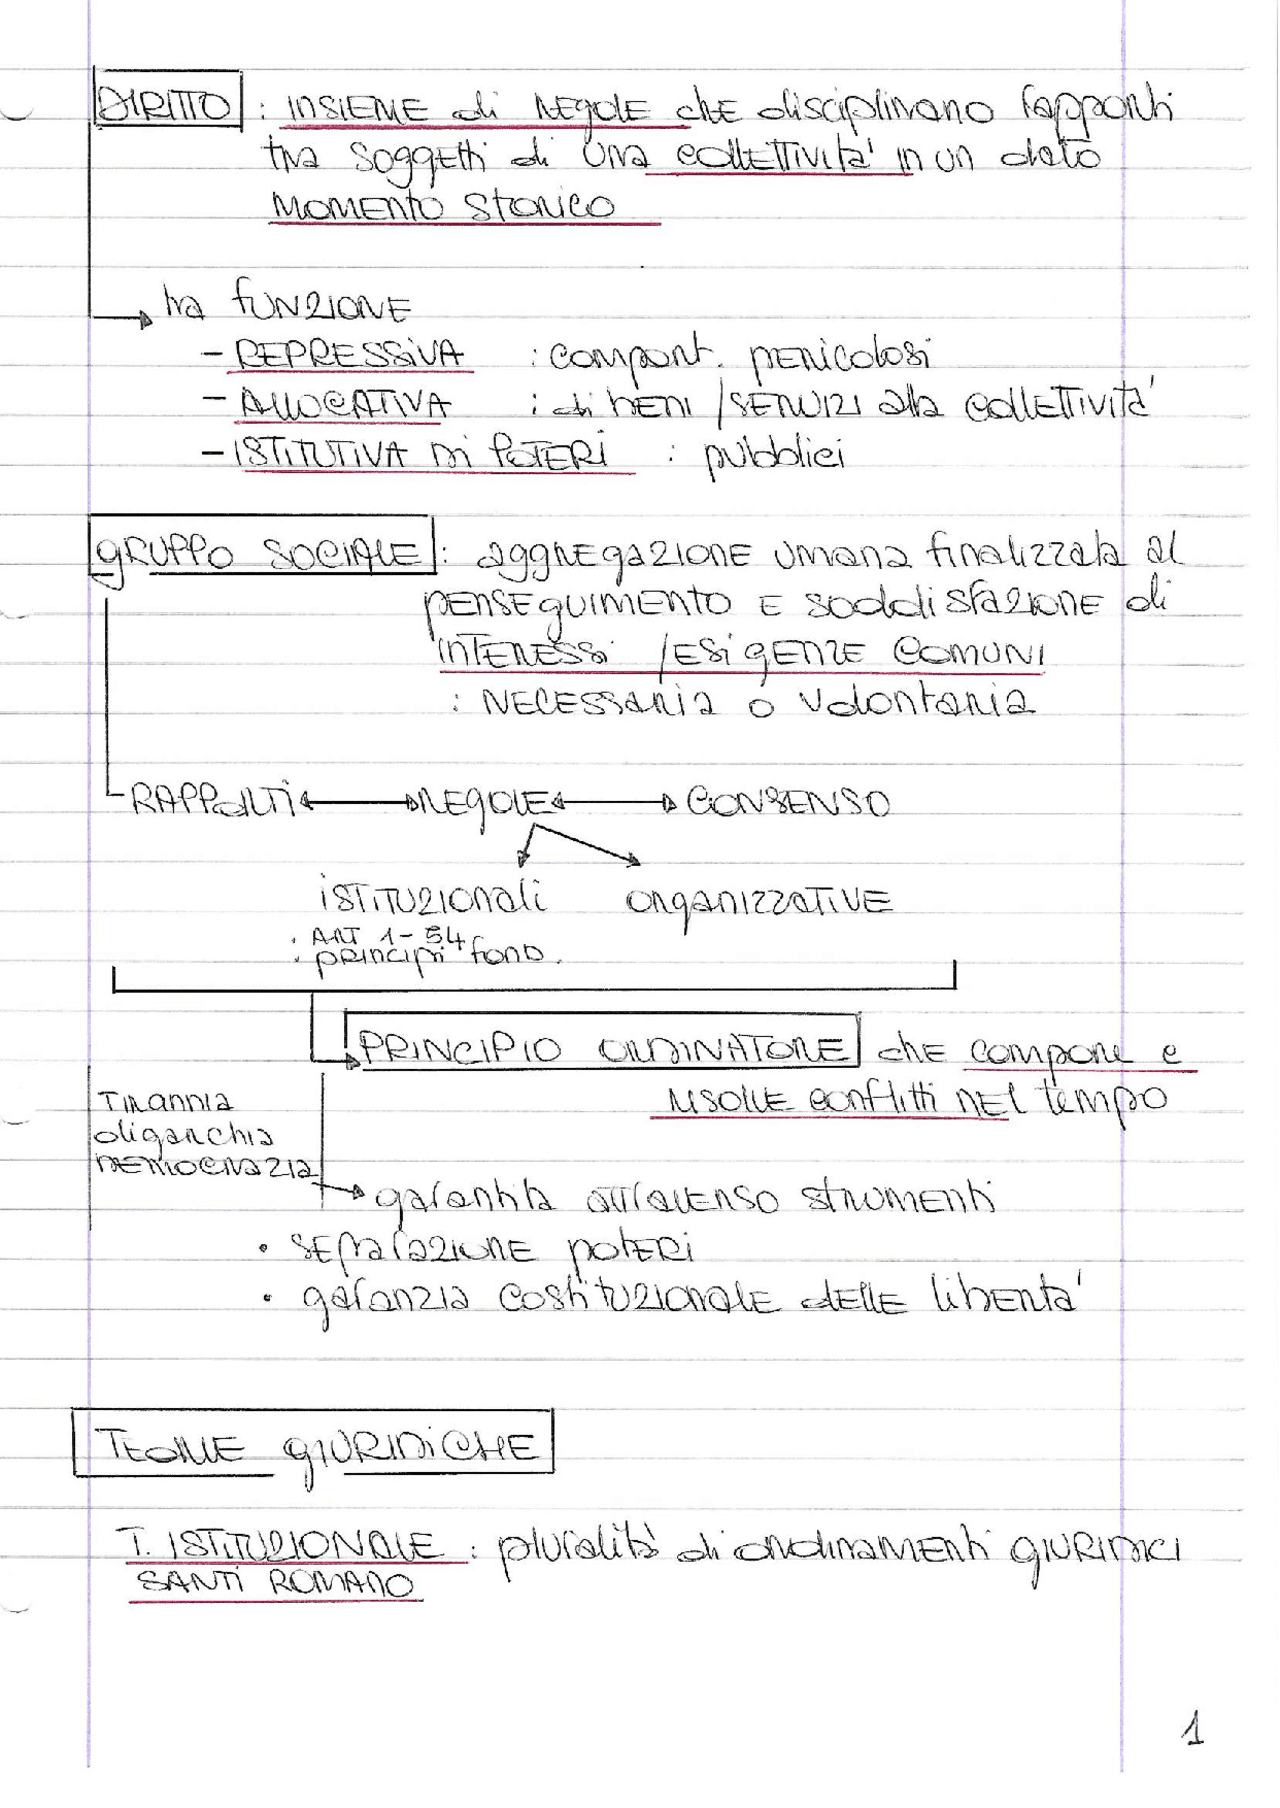 DIRITTO : INSIEME di REGOLE che disciplinano rapporti
tra soggetti di una collettività in un dato
MOMENTO STORICO
ha FUNZIONE
- REPRESSIVA : comport. pericolosi
- ALLOCATIVA : di beni / SERVIZI alla collettività
- ISTITUTIVA DI POTERI : pubblici
GRUPPO SOCIALE : aggregazione umana finalizzata al
perseguimento e soddisfazione di
INTERESSI / ESIGENZE COMUNI
: NECESSARIA o volontaria
RAPPORTI REGOLE CONSENSO
ISTITUZIONALI ORGANIZZATIVE
. ART 1-54
. principi fond.
PRINCIPIO ORDINATORE che compone e
risolve conflitti nel tempo
Tirannia
oligarchia
DEMOCRAZIA
garantita attraverso strumenti
• separazione poteri
• garanzia costituzionale delle libertà
TEORIE GIURIDICHE
T. ISTITUZIONALE : pluralità di ordinamenti giuridici
SANTI ROMANO
1